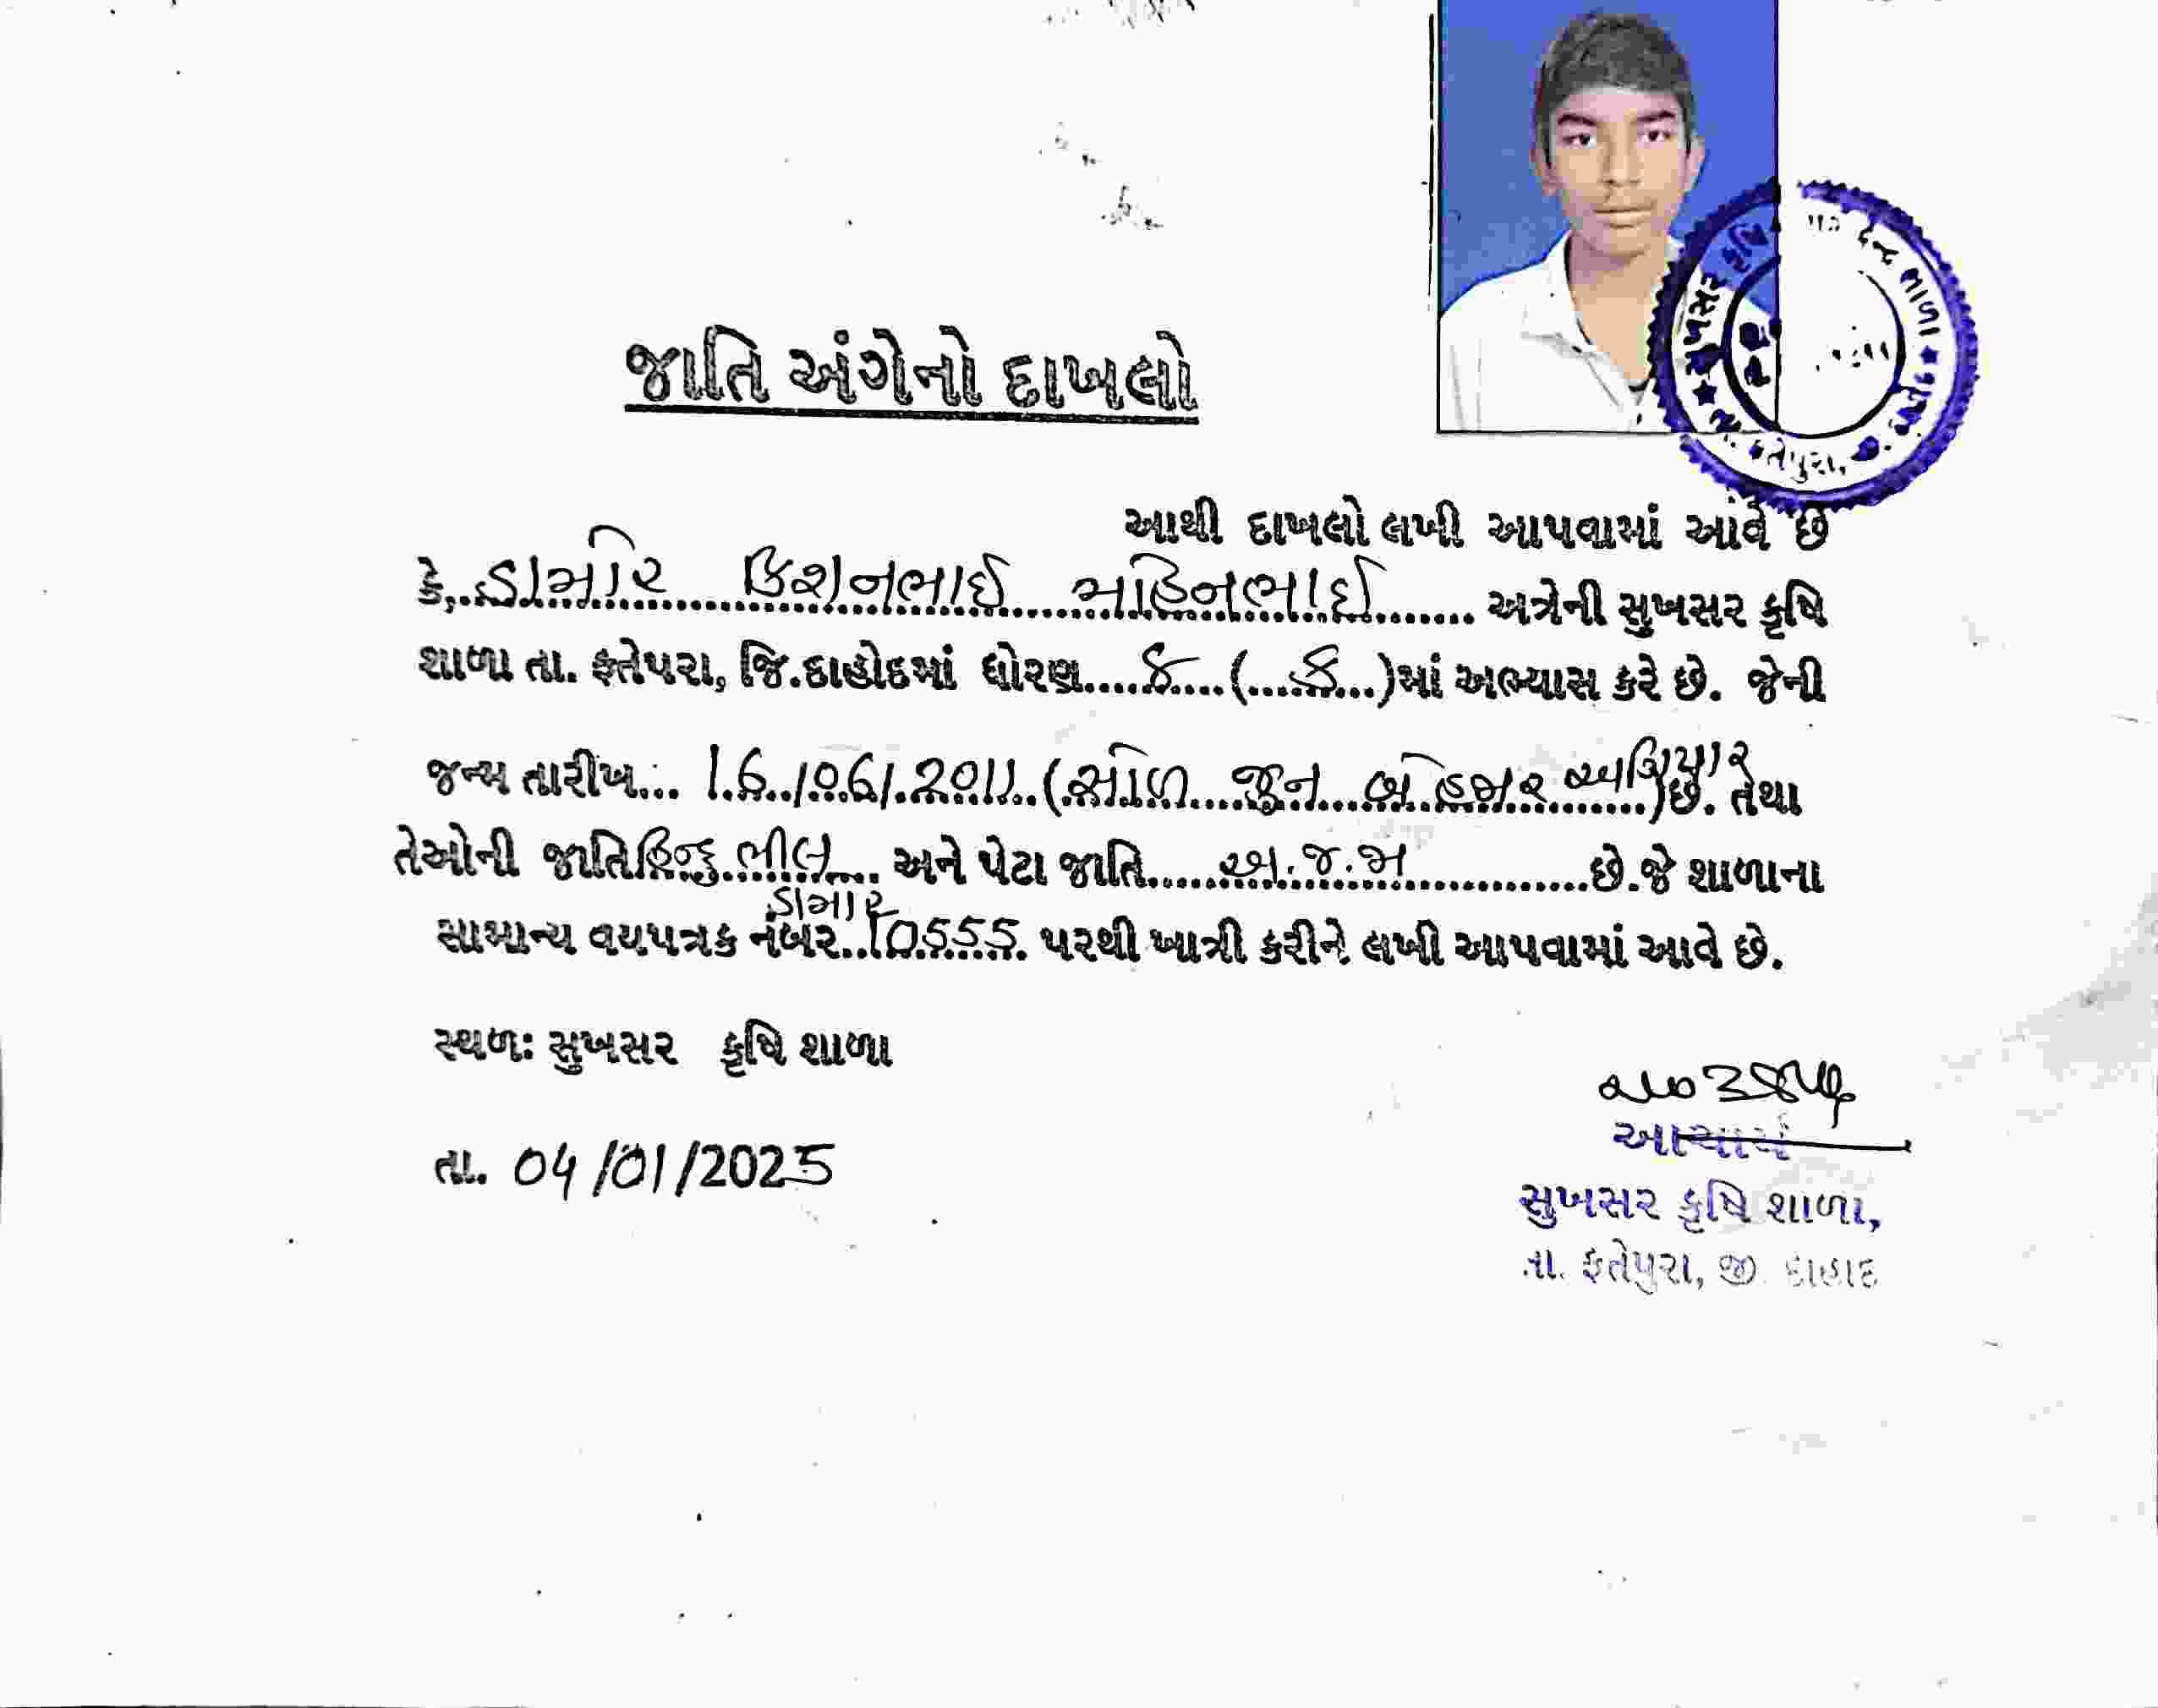 જાતિ અંગેનો દાખલો
સુખસર કૃષિ શાળા ★ તા. ફતેપુરા,
આથી દાખલો લખી આપવામાં આવે છે
કે, ડામોર કિશનભાઈ મહિનભાઈ અત્રેની સુખસર કૃષિ
શાળા તા. ફતેપરા, જિ.દાહોદમાં ધોરણ.... (.... ક ...)માં અભ્યાસ કરે છે. જેની
જન્મ તારીખ... 16/06/2011 (સોળ જુન બે હજાર અગિયાર) છે. તેથા
તેઓની જાતિ હિન્દુ ભીલ અને પેટા જાતિ..... અ.જ.જા ..... છે.જે શાળાના
ડામોર
સામાન્ય વયપત્રક નંબર.. 10555 પરથી ખાત્રી કરીને લખી આપવામાં આવે છે.
સ્થળ: સુખસર કૃષિ શાળા
તા. 04/01/2025
આચાર્ય
સુખસર કૃષિ શાળા,
તા. ફતેપુરા, જી. દાહોદ